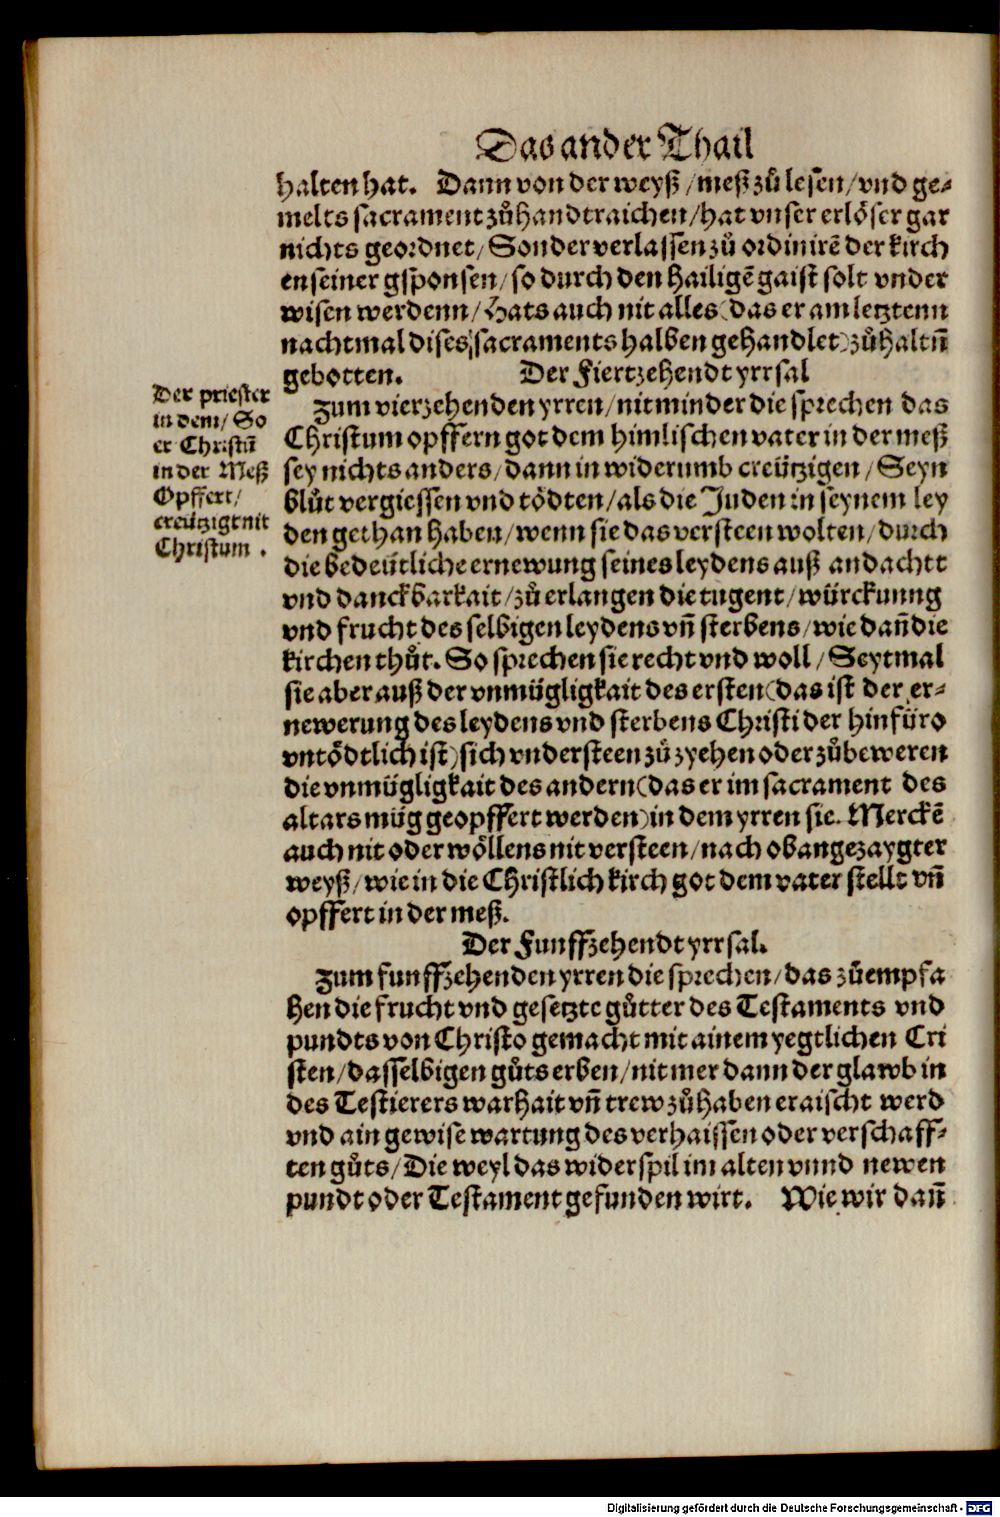 Das ander Thail
halten hat. Dann von der weyß/meß zů lesen/vnd ge-
melts sacrament zů handtraichen/hat vnser erlöser gar
nichts geordnet/Sonder verlassen zů ordinirē der kirch
en seiner gsponsen/so durch den hailigē gaist solt vnder
wisen werdenn/Hats auch nit alles (das er am letztenn
nachtmal dises sacraments halben gehandlet) zů haltn̄
gebotten. Der Fiertzehendt yrrsal
Der priester
in dem/So
er Christū
in der Meß
Opffert/
creützigt nit
Christum.
Zum vierzehenden yrren/nit minder die sprechen das
Christum opffern got dem himlischen vater in der meß
sey nichts anders/dann in widerumb creützigen/Seyn
blůt vergiessen vnd tödten/als die Juden in seynem ley
den gethan haben/wenn sie das versteen wolten/durch
die bedeütliche ernewung seines leydens auß andachtt
vnd danckbarkait/zů erlangen die tugent/würckunng
vnd frucht des selbigen leydens vn̄ sterbens/wie dan̄ die
kirchen thůt. So sprechen sie recht vnd woll/Seytmal
sie aber auß der vnmügligkait des ersten (das ist der er-
newerung des leydens vnd sterbens Christi der hinfüro
vntödtlich ist) sich vndersteen zů zyehen oder zů beweren
die vnmügligkait des andern (das er im sacrament des
altars müg geopffert werden) in dem yrren sie. Merckē
auch nit oder wöllens nit versteen/nach obangezaygter
weyß/wie in die Christlich kirch got dem vater stellt vn̄
opffert in der meß.
Der Funffzehendt yrrsal.
Zum funffzehenden yrren die sprechen/das zů empfa
hen die frucht vnd gesetzte gůtter des Testaments vnd
pundts von Christo gemacht mit ainem yegtlichen Cri
sten/dasselbigen gůts erben/nit mer dann der glawb in
des Testierers warhait vn̄ trew zů haben eraischt werd
vnd ain gewise wartung des verhaissen oder verschaff-
ten gůts/Die weyl das widerspil im alten vnnd newen
pundt oder Testament gefunden wirt. Wie wir dan̄
Digitalisierung gefördert durch die Deutsche Forschungsgemeinschaft - DFG